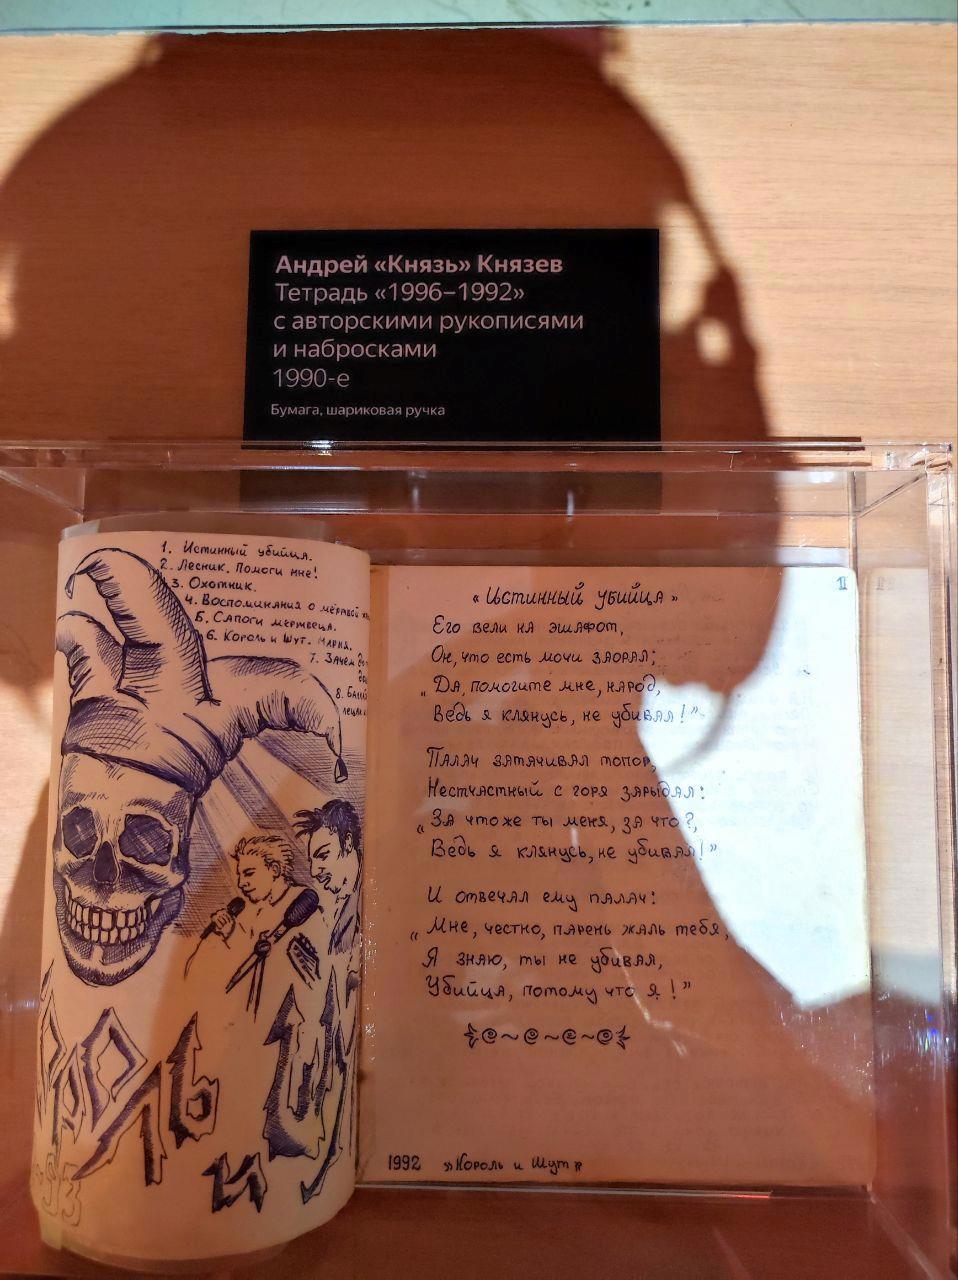 Андрей «Князь» Князев
Тетрадь «1996–1992»
с авторскими рукописями
и набросками
1990-е
Бумага, шариковая ручка
1. Истинный убийца.
2. Лесник. Помоги мне!
3. Охотник.
4. Воспоминания о мёртвой
5. Сапоги мертвеца.
6. Король и Шут. Мария.
7. Зачем
8.
роль
и Шу
93
1
«Истинный убийца»
Его вели на эшафот,
Он, что есть мочи заорал;
„Да, помогите мне, народ,
Ведь я клянусь, не убивал!”
Палач затачивал топор,
Нестчастный с горя зарыдал:
„За что же ты меня, за что?,
Ведь я клянусь, не убивал!”
И отвечал ему палач:
„Мне, честно, парень жаль тебя,
Я знаю, ты не убивал,
Убийца, потому что я!”
1992 »Король и Шут»